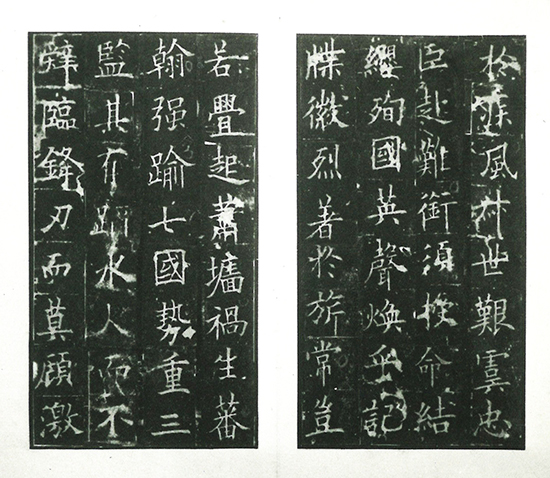 於疾風叔世艱虞忠
臣赴難銜須授命結
纓殉國英聲煥乎記
牒徽烈著於旂常豈
若疊起蕭墻禍生蕃
翰强踰七國勢重三
監其有蹈水火而不
辭臨鋒刃而莫顧激